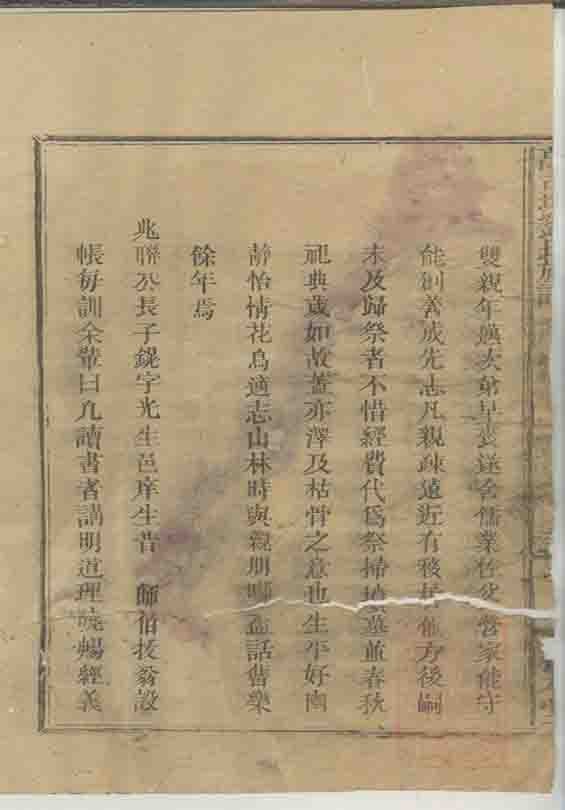 雙親年邁次弟早喪遂舍儒業營家能守
能創善成先志凡親疎遠近有移居他方後嗣
未及歸祭者不惜經費代爲祭掃墳墓並春秋
祀典歲如故葢亦澤及枯骨之意也生平好幽
靜怡情花鳥適志山林時與親朋啣盃話舊樂
餘年焉
兆聯公長子鋧字光生邑庠生昔 師伯技翁設
帳每訓余輩曰凡讀書者講明道理曉暢經義